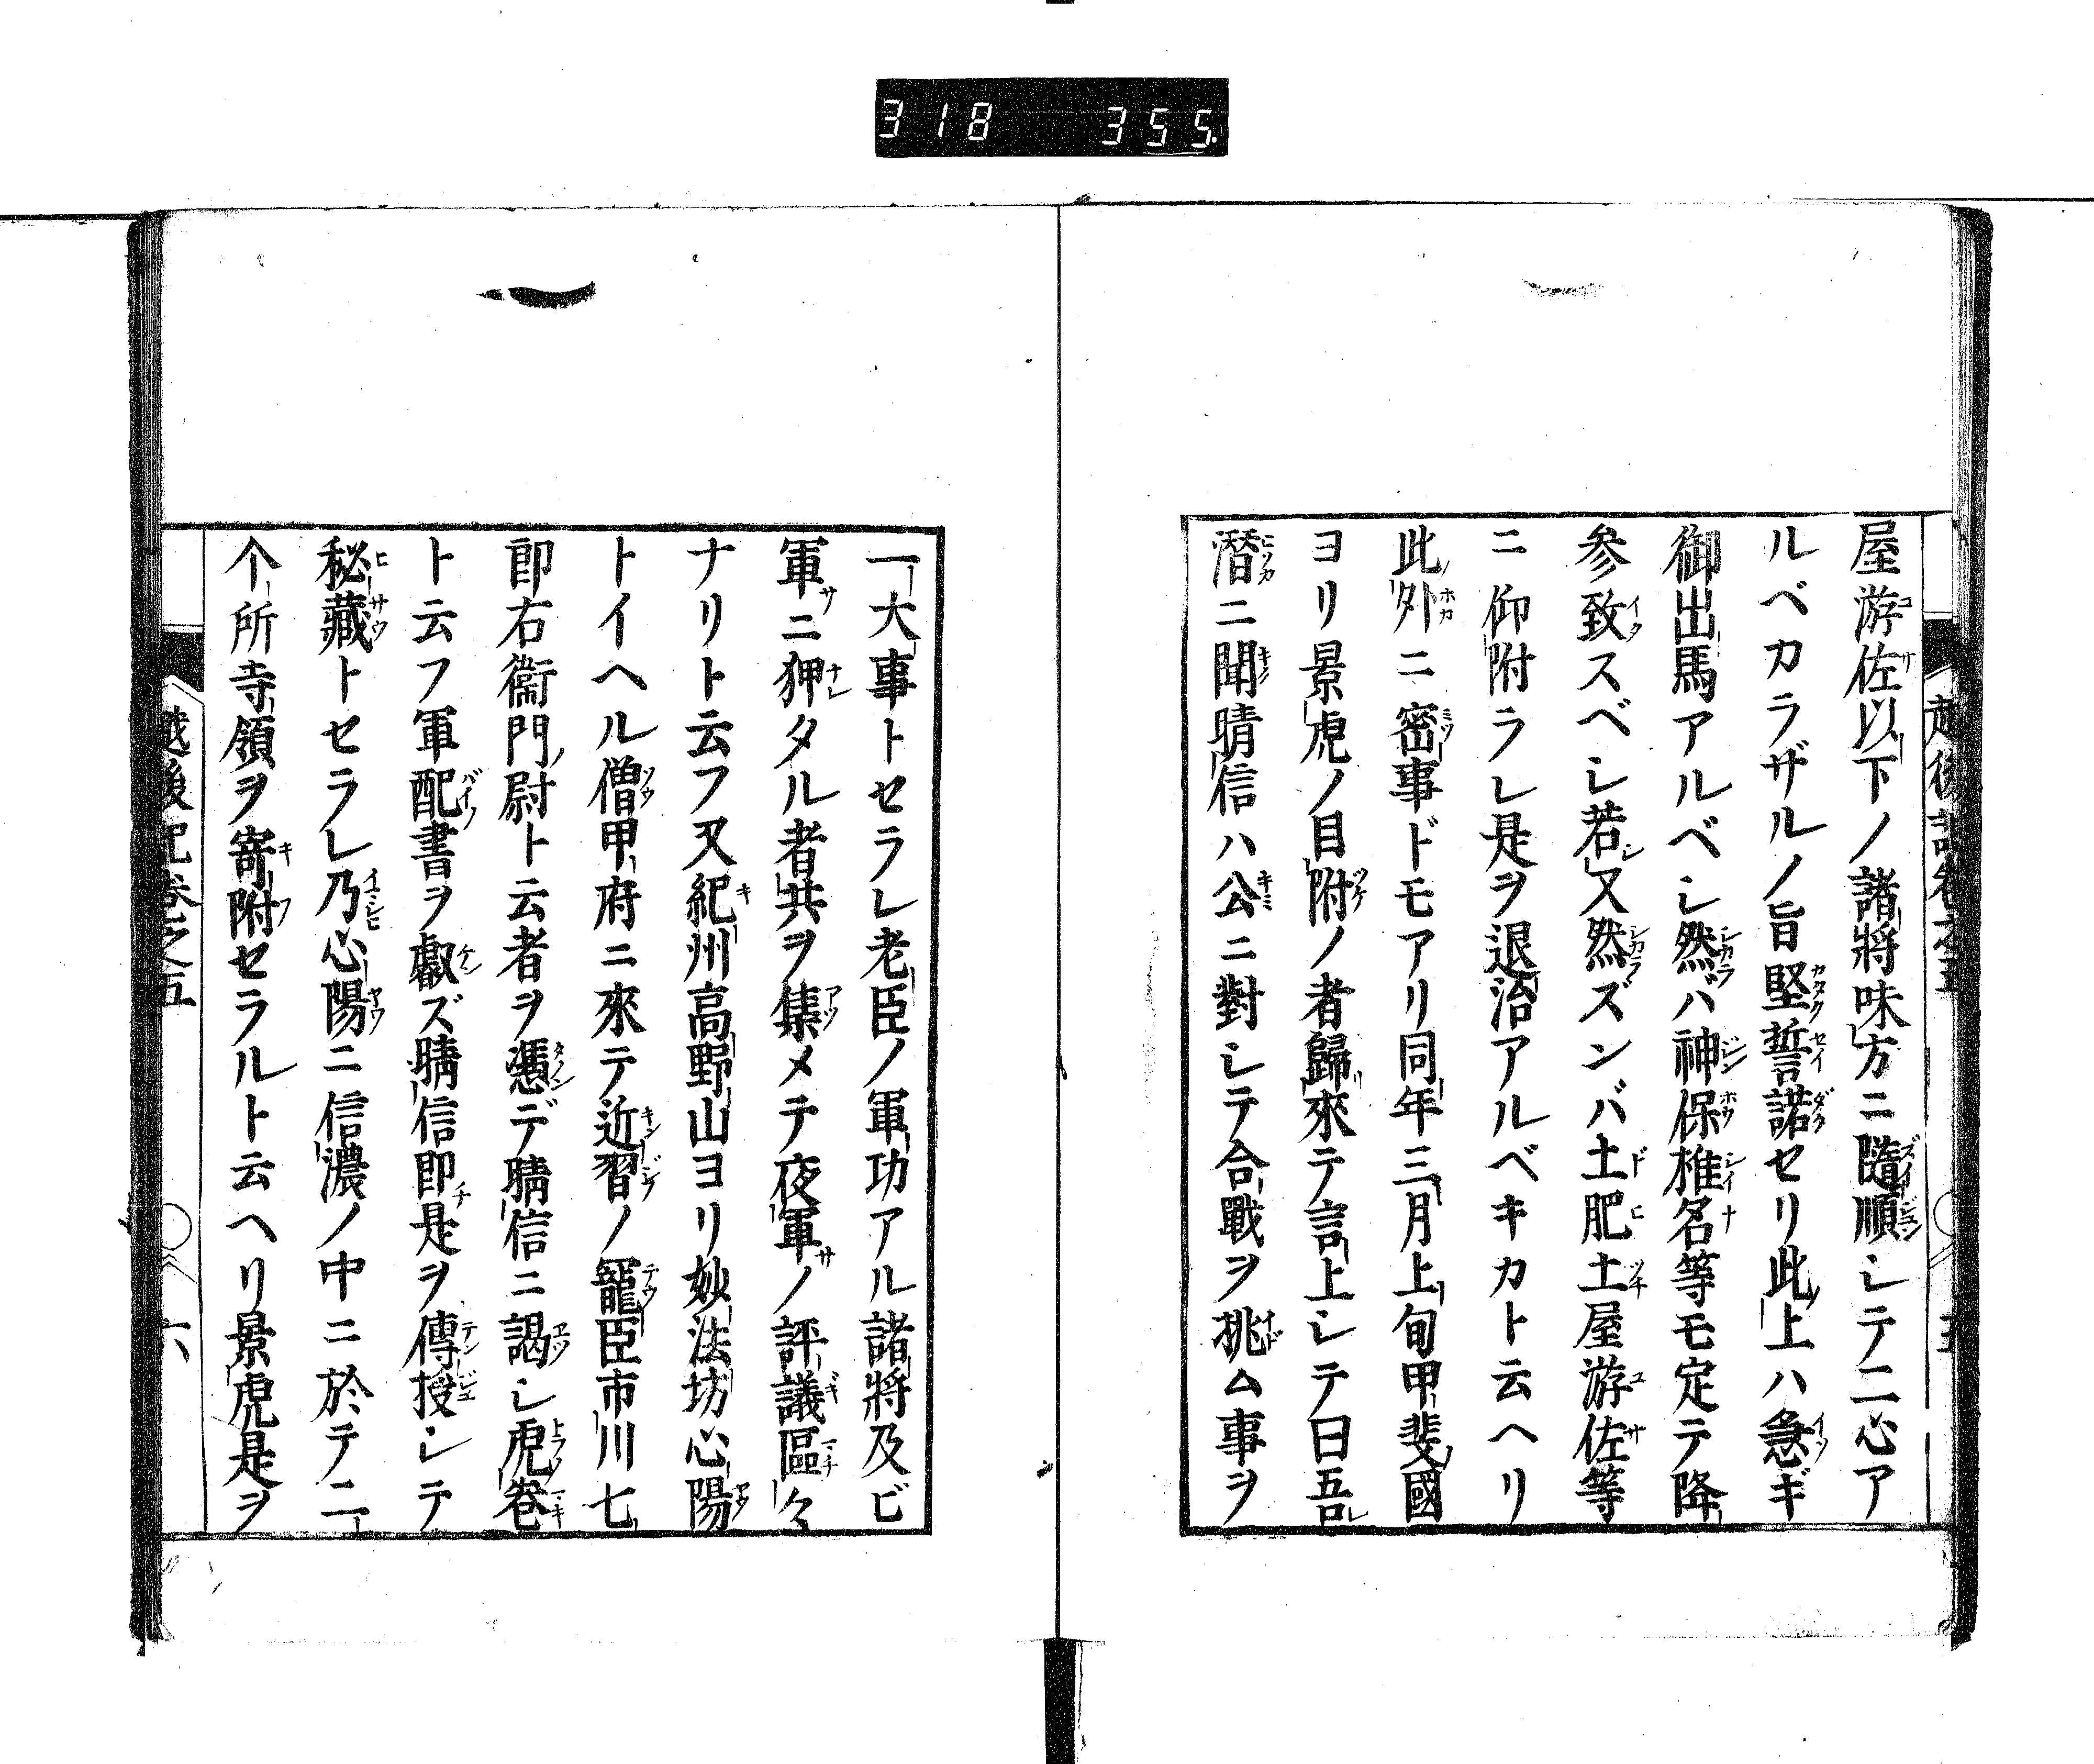 318 355.
越後記卷之五
五
屋游佐以下ノ諸將味方ニ隨順シテ二心ア
ルベカラザルノ旨堅誓諾セリ此上ハ急ギ
御出馬アルベシ然バ神保椎名等モ定テ降
参致スベシ若又然ズンバ土肥土屋游佐等
ニ仰附ラレ是ヲ退治アルベキカト云ヘリ
此外ニ密事ドモアリ同年三月上旬甲斐國
ヨリ景虎ノ目附ノ者歸來テ言上シテ曰吾
潜ニ聞晴信ハ公ニ對シテ合戰ヲ挑ム事ヲ
一大事トセラレ老臣ノ軍功アル諸將及ビ
軍ニ狎タル者共ヲ集メテ夜軍ノ評議區々
ナリト云フ又紀州高野山ヨリ妙法坊心陽
トイヘル僧甲府ニ來テ近習ノ寵臣市川七
郎右衞門尉ト云者ヲ憑デ晴信ニ謁シ虎巻
ト云フ軍配書ヲ獻ズ晴信即是ヲ傳授シテ
秘藏トセラレ乃心陽ニ信濃ノ中ニ於テ二
个所寺領ヲ寄附セラルト云ヘリ景虎是ヲ
越後記卷之五
六